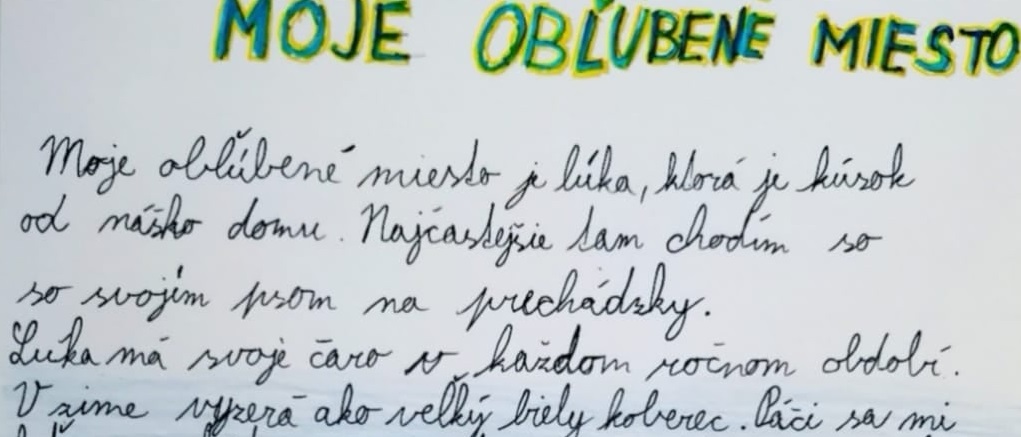 MOJE OBĽUBENÉ MIESTO
Moje obľúbené miesto je lúka, ktorá je kúsok
od nášho domu. Najčastejšie tam chodím so
so svojím psom na prechádzky.
Luka má svoje čaro v každom ročnom období.
V zime vyzerá ako veľký biely koberec. Páči sa mi